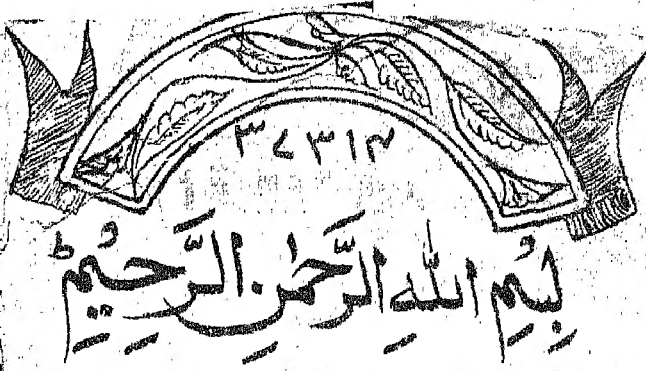 ۳۷۳۱۴
بِسْمِ اللّٰهِ الرَّحْمٰنِ الرَّحِيْمِ ؕ